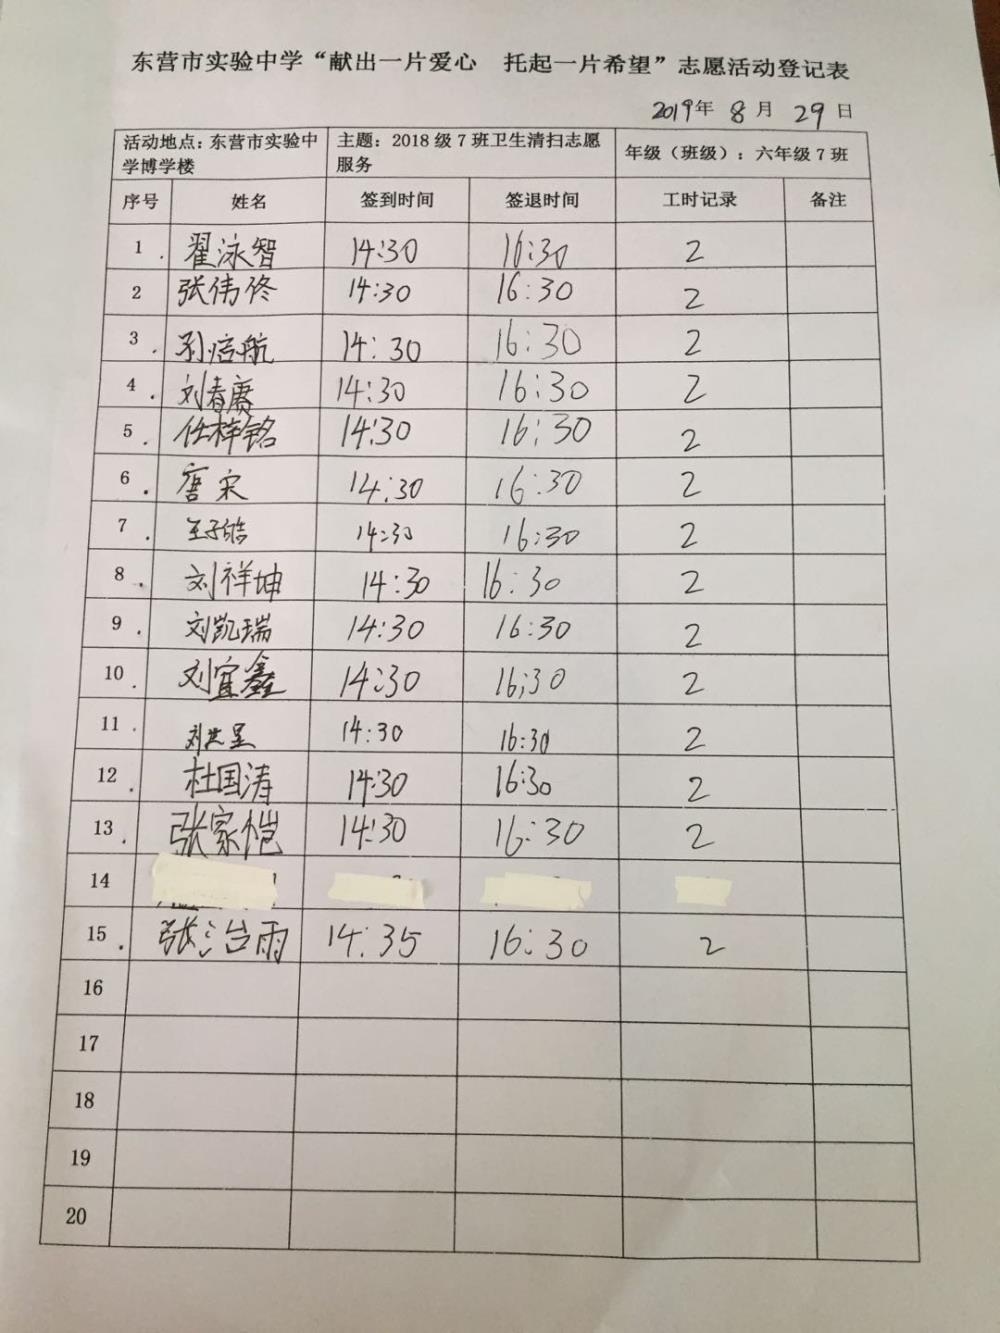 东营市实验中学“献出一片爱心 托起一片希望”志愿活动登记表
2019年 8月 29日
活动地点：东营市实验中学博学楼 主题：2018级7班卫生清扫志愿服务 年级（班级）：六年级7班
序号 姓名 签到时间 签退时间 工时记录 备注
1 翟泳智 14:30 16:30 2
2 张伟佟 14:30 16:30 2
3 孙培航 14:30 16:30 2
4 刘春赓 14:30 16:30 2
5 任梓铭 14:30 16:30 2
6 唐宋 14:30 16:30 2
7 王子皓 14:30 16:30 2
8 刘祥坤 14:30 16:30 2
9 刘凯瑞 14:30 16:30 2
10 刘宜鑫 14:30 16:30 2
11 刘 14:30 16:30 2
12 杜国涛 14:30 16:30 2
13 张家恺 14:30 16:30 2
14
15 张 雨 14:35 16:30 2
16
17
18
19
20